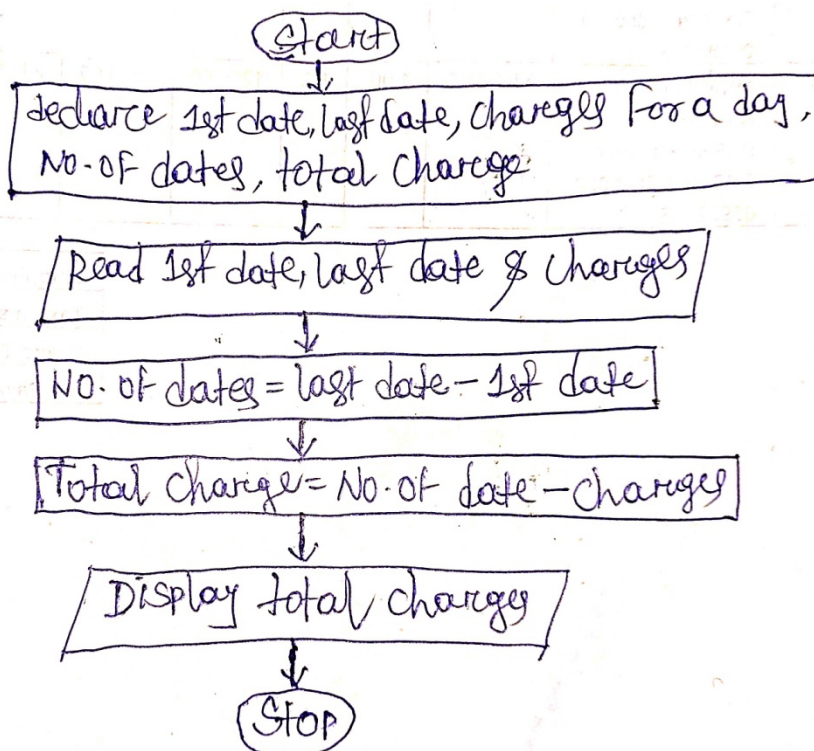 Start
declare 1st date, last date, charges for a day,
No. of dates, total charge
Read 1st date, last date & charges
No. of dates = last date - 1st date
Total charge = No. of date - charges
Display total charges
Stop